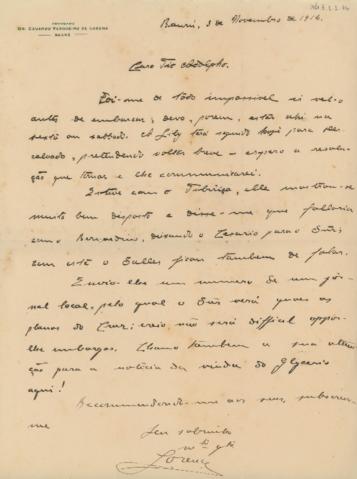 ADVOGADO
DR. EDUARDO VERGUEIRO DE LORENA
BAURÚ
Baurú, 3 de Novembro de 1916.
Caro Tio Adolpho.
Foi-me de todo impossivel ir vel-o
antes de embarcar; devo, porem, estar ahi na
sexta ou sabbado. A Lily terá seguido hoje para
calvado, pretendendo voltar breve – espero a resolu-
ção que tomar e lhe communicarei.
Estive com o Tibiriça, elle mostrou-se
muito bem disposto e disse-me que fallaria
com o Bernardino, deixando o Cesario para o Snr;
com este o Salles ficou tambem de fallar.
Envio-lhe um numero de um jor-
nal local, pelo qual o Snr verá quaes os
planos do Cruz; creio não será difficil oppor-
lhe embargos. Chamo tambem a sua atten-
ção para a noticia da vinda do Glycerio
aqui!
Recommendando-me aos seus, subscrevo-
me
Seu sobrinho
Lorena